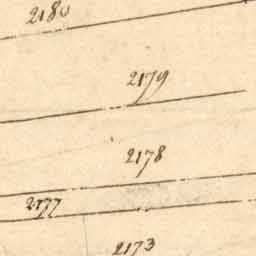 2180
2179
2178
2177
2173